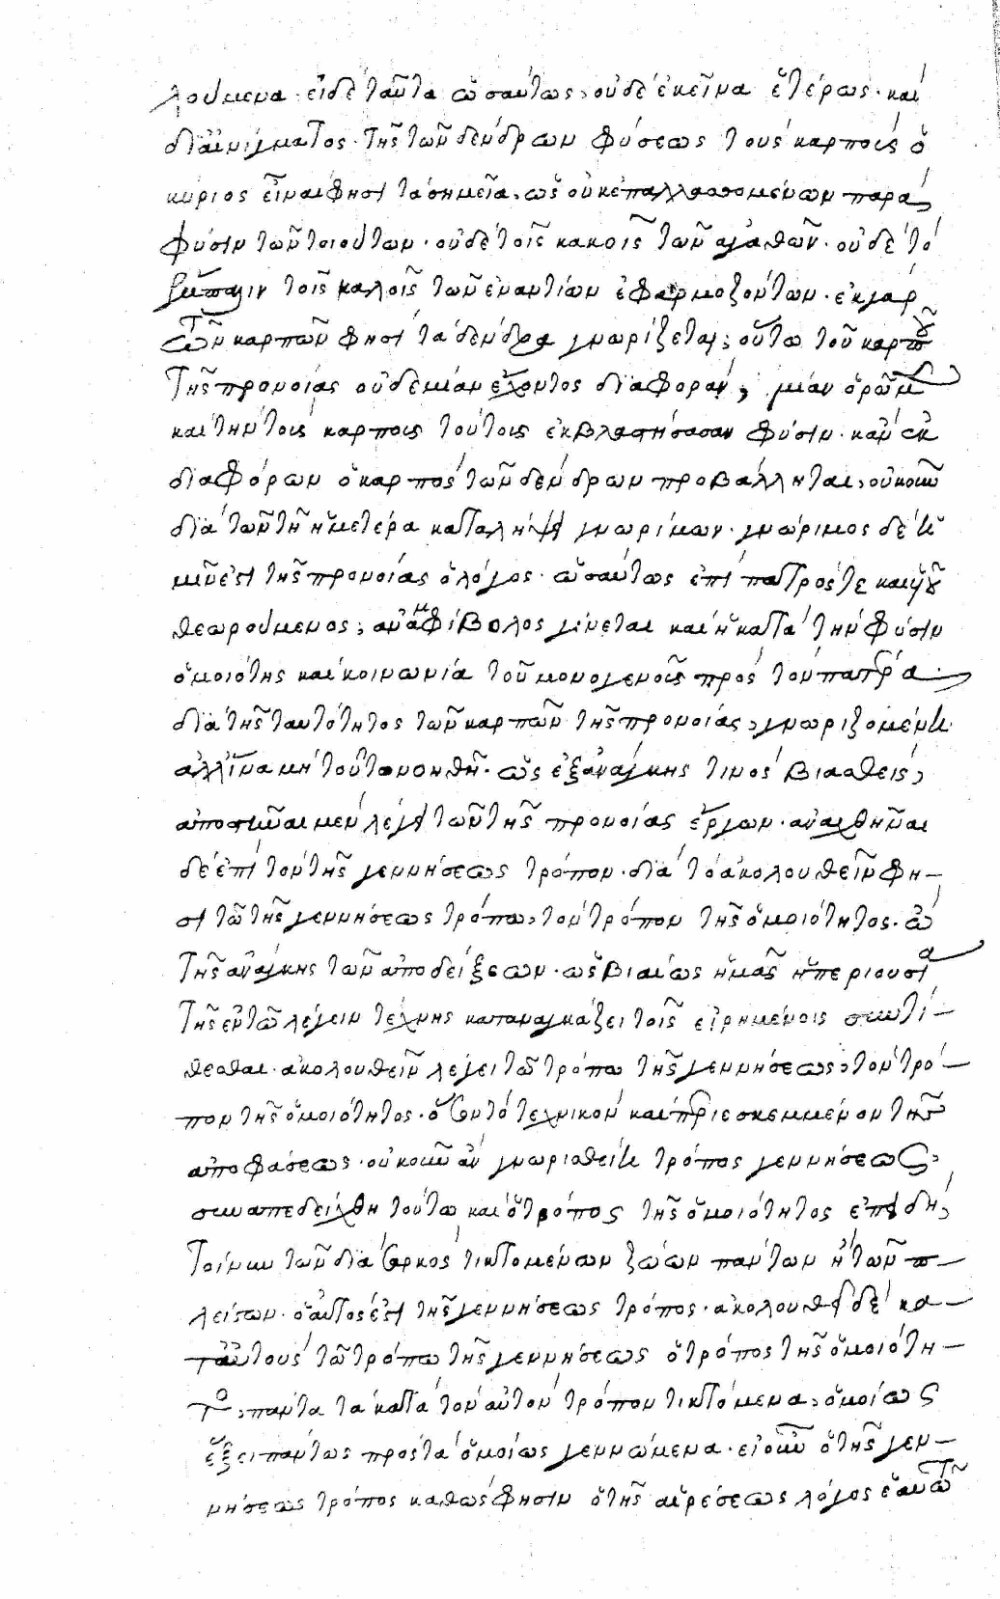 λούμενα· εἰ δὲ ταῦτα ὡσαύτως, οὐδὲ ἐκεῖνα ἑτέρως· καὶ
δι' αἰνίγματος· τῆς τῶν δένδρων φύσεως τοὺς καρποὺς ὁ
κύριος εἶναι φησὶ τὰ σημεῖα, ὡς οὐκ ἐπαλλασσομένων παρὰ
φύσιν τῶν τοιούτων· οὐδὲ τοῖς κακοῖς τῶν ἀγαθῶν· οὐδὲ τὸ
ἔμπαλιν τοῖς καλοῖς τῶν ἐναντίων ἐφαρμοζόντων· ἐκ γὰρ
τῶν καρπῶν φησὶ τὰ δένδρα γνωρίζεται; οὕτω τοῦ καρποῦ
τῆς προνοίας οὐδεμίαν ἔχοντος διαφορὰν, μίαν ὁρῶμεν
καὶ τὴν τοῖς καρποῖς τούτοις ἐκβλαστήσασαν φύσιν· κἂν ἐκ
διαφόρων ὁ καρπὸς τῶν δένδρων προβάλληται, οὐκοῦν
διὰ τῶν τῇ ἡμετέρα καταλήψει γνωρίμων· γνώριμος δὲ ἡ
μῖν ἐστὶ τῆς προνοίας ὁ λόγος· ὡσαύτως ἐπὶ πατρός τε καὶ υἱοῦ
θεωρούμενος, ἀναμφίβολος γίνεται καὶ ἡ κατὰ τὴν φύσιν
ὁμοιότης καὶ κοινωνία τοῦ μονογενοῦς πρὸς τὸν πατέρα·
διὰ τῆς ταυτότητος τῶν καρπῶν τῆς προνοίας, γνωριζομένη
ἀλλ' ἵνα μὴ τοῦτο νοηθῇ· ὡς ἐξ ἀνάγκης τινὸς βιασθεὶς,
ἀποστῆναι μὲν λέγει τῶν τῆς προνοίας ἔργων· ἀναχθῆναι
δὲ ἐπὶ τὸν τῆς γεννήσεως τρόπον· διὰ τὸ ἀκολουθεῖν φη–
σι τῷ τῆς γεννήσεως τρόπω, τὸν τρόπον τῆς ὁμοιότητος· ὢ
τῆς ἀνάγκης τῶν ἀποδείξεων· ὡς βιαίως ἡμᾶς ἡ περιουσία
τῆς ἐν τῶ λέγειν τέχνης καταναγκάζει τοῖς εἰρημένοις συντί–
θεσθαι· ἀκολουθεῖν λέγει τῶ τρόπω τῆς γεννήσεως, τὸν τρό–
πον τῆς ὁμοιότητος· ὦ τὸ τεχνικὸν καὶ περιεσκεμμένον τῆς
ἀποφάσεως· οὐκοῦν ἂν γνωρισθείη τρόπος γεννήσεως,
συναπεδείχθη τούτω καὶ ὁ τρόπος τῆς ὁμοιότητος ἐπειδὴ,
τοίνυν τῶν διὰ σαρκὸς τικτομένων ζώων πάντων ἢ τῶν π–
λείστων· ὁ αὐτός ἐστι τῆς γεννήσεως τρόπος· ἀκολουθεῖ δὲ κα–
τ' αὐτοὺς τῶ τρόπω τῆς γεννήσεως ὁ τρόπος τῆς ὁμοιότη–
τος, πάντα τὰ κατὰ τὸν αὐτὸν τρόπον τικτόμενα, ὁμοίως
ἕξει πάντως πρὸς τὰ ὁμοίως γεννώμενα· εἰ οὖν ὁ τῆς γεν–
νήσεως τρόπος καθώς φησιν ὁ τῆς αἱρέσεως λόγος ἑαυτῶ